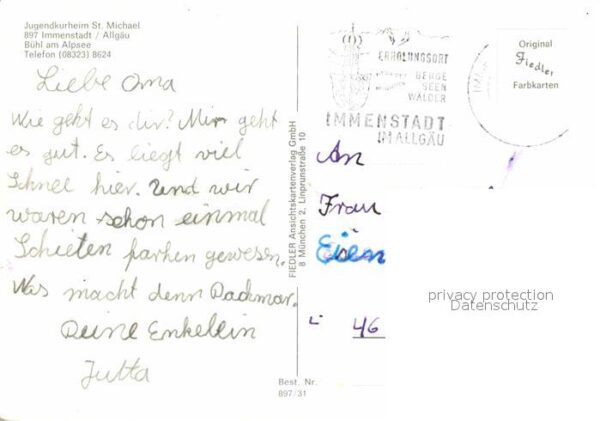 Jugendkurheim St. Michael
897 Immenstadt / Allgäu
Bühl am Alpsee
Telefon (08323) 8624
Liebe Oma
Wie geht es dir? Mir geht
es gut. Es liegt viel
Schnel hier. Und wir
waren schon einmal
Schieten farhen gewesen.
Was macht denn Dackmar.
Deine Enkelein
Jutta
Best. Nr.
897/31
FIEDLER Ansichtskartenverlag GmbH
8 München 2, Linprunstraße 10
ERHOLUNGSORT
BERGE
SEEN
WÄLDER
IMMENSTADT
IM ALLGÄU
Original
Fiedler
Farbkarten
An
Frau
Eisen
46
privacy protection
Datenschutz